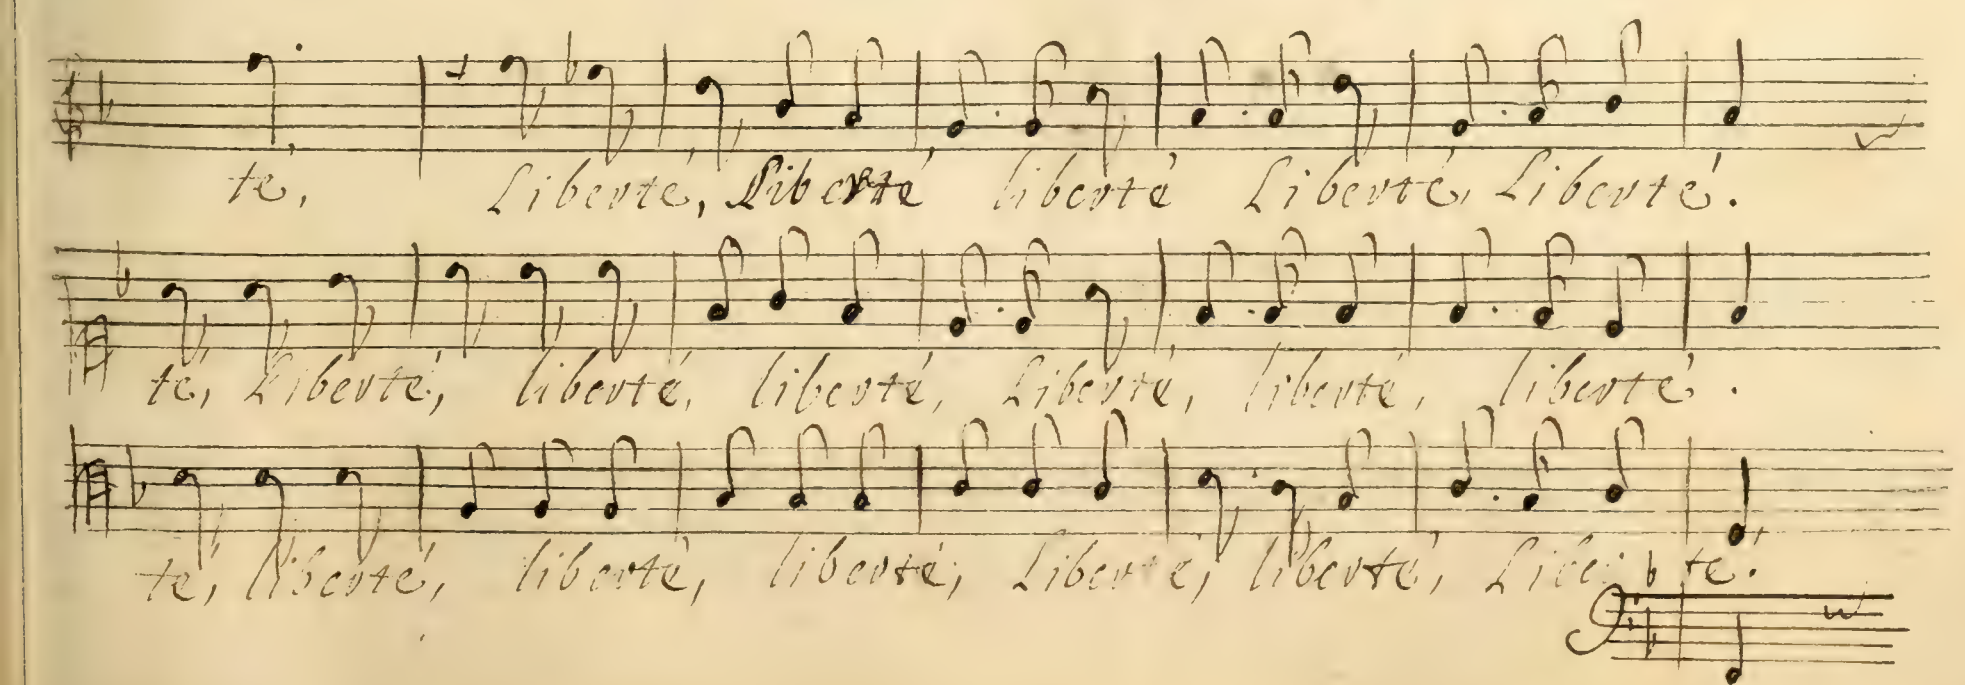 te, Liberté, Liberté liberté Liberté, Liberté.
té, Liberté, liberté, liberté, Liberté, liberté, liberté.
té, liberté, liberté, liberté, Liberté, liberté, Liberté.